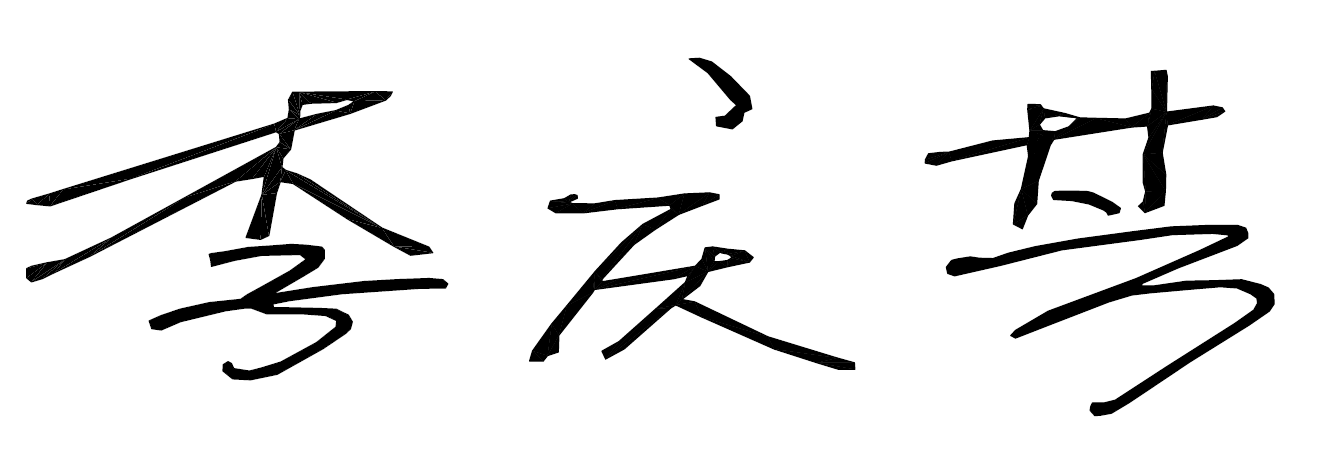 李庆芳